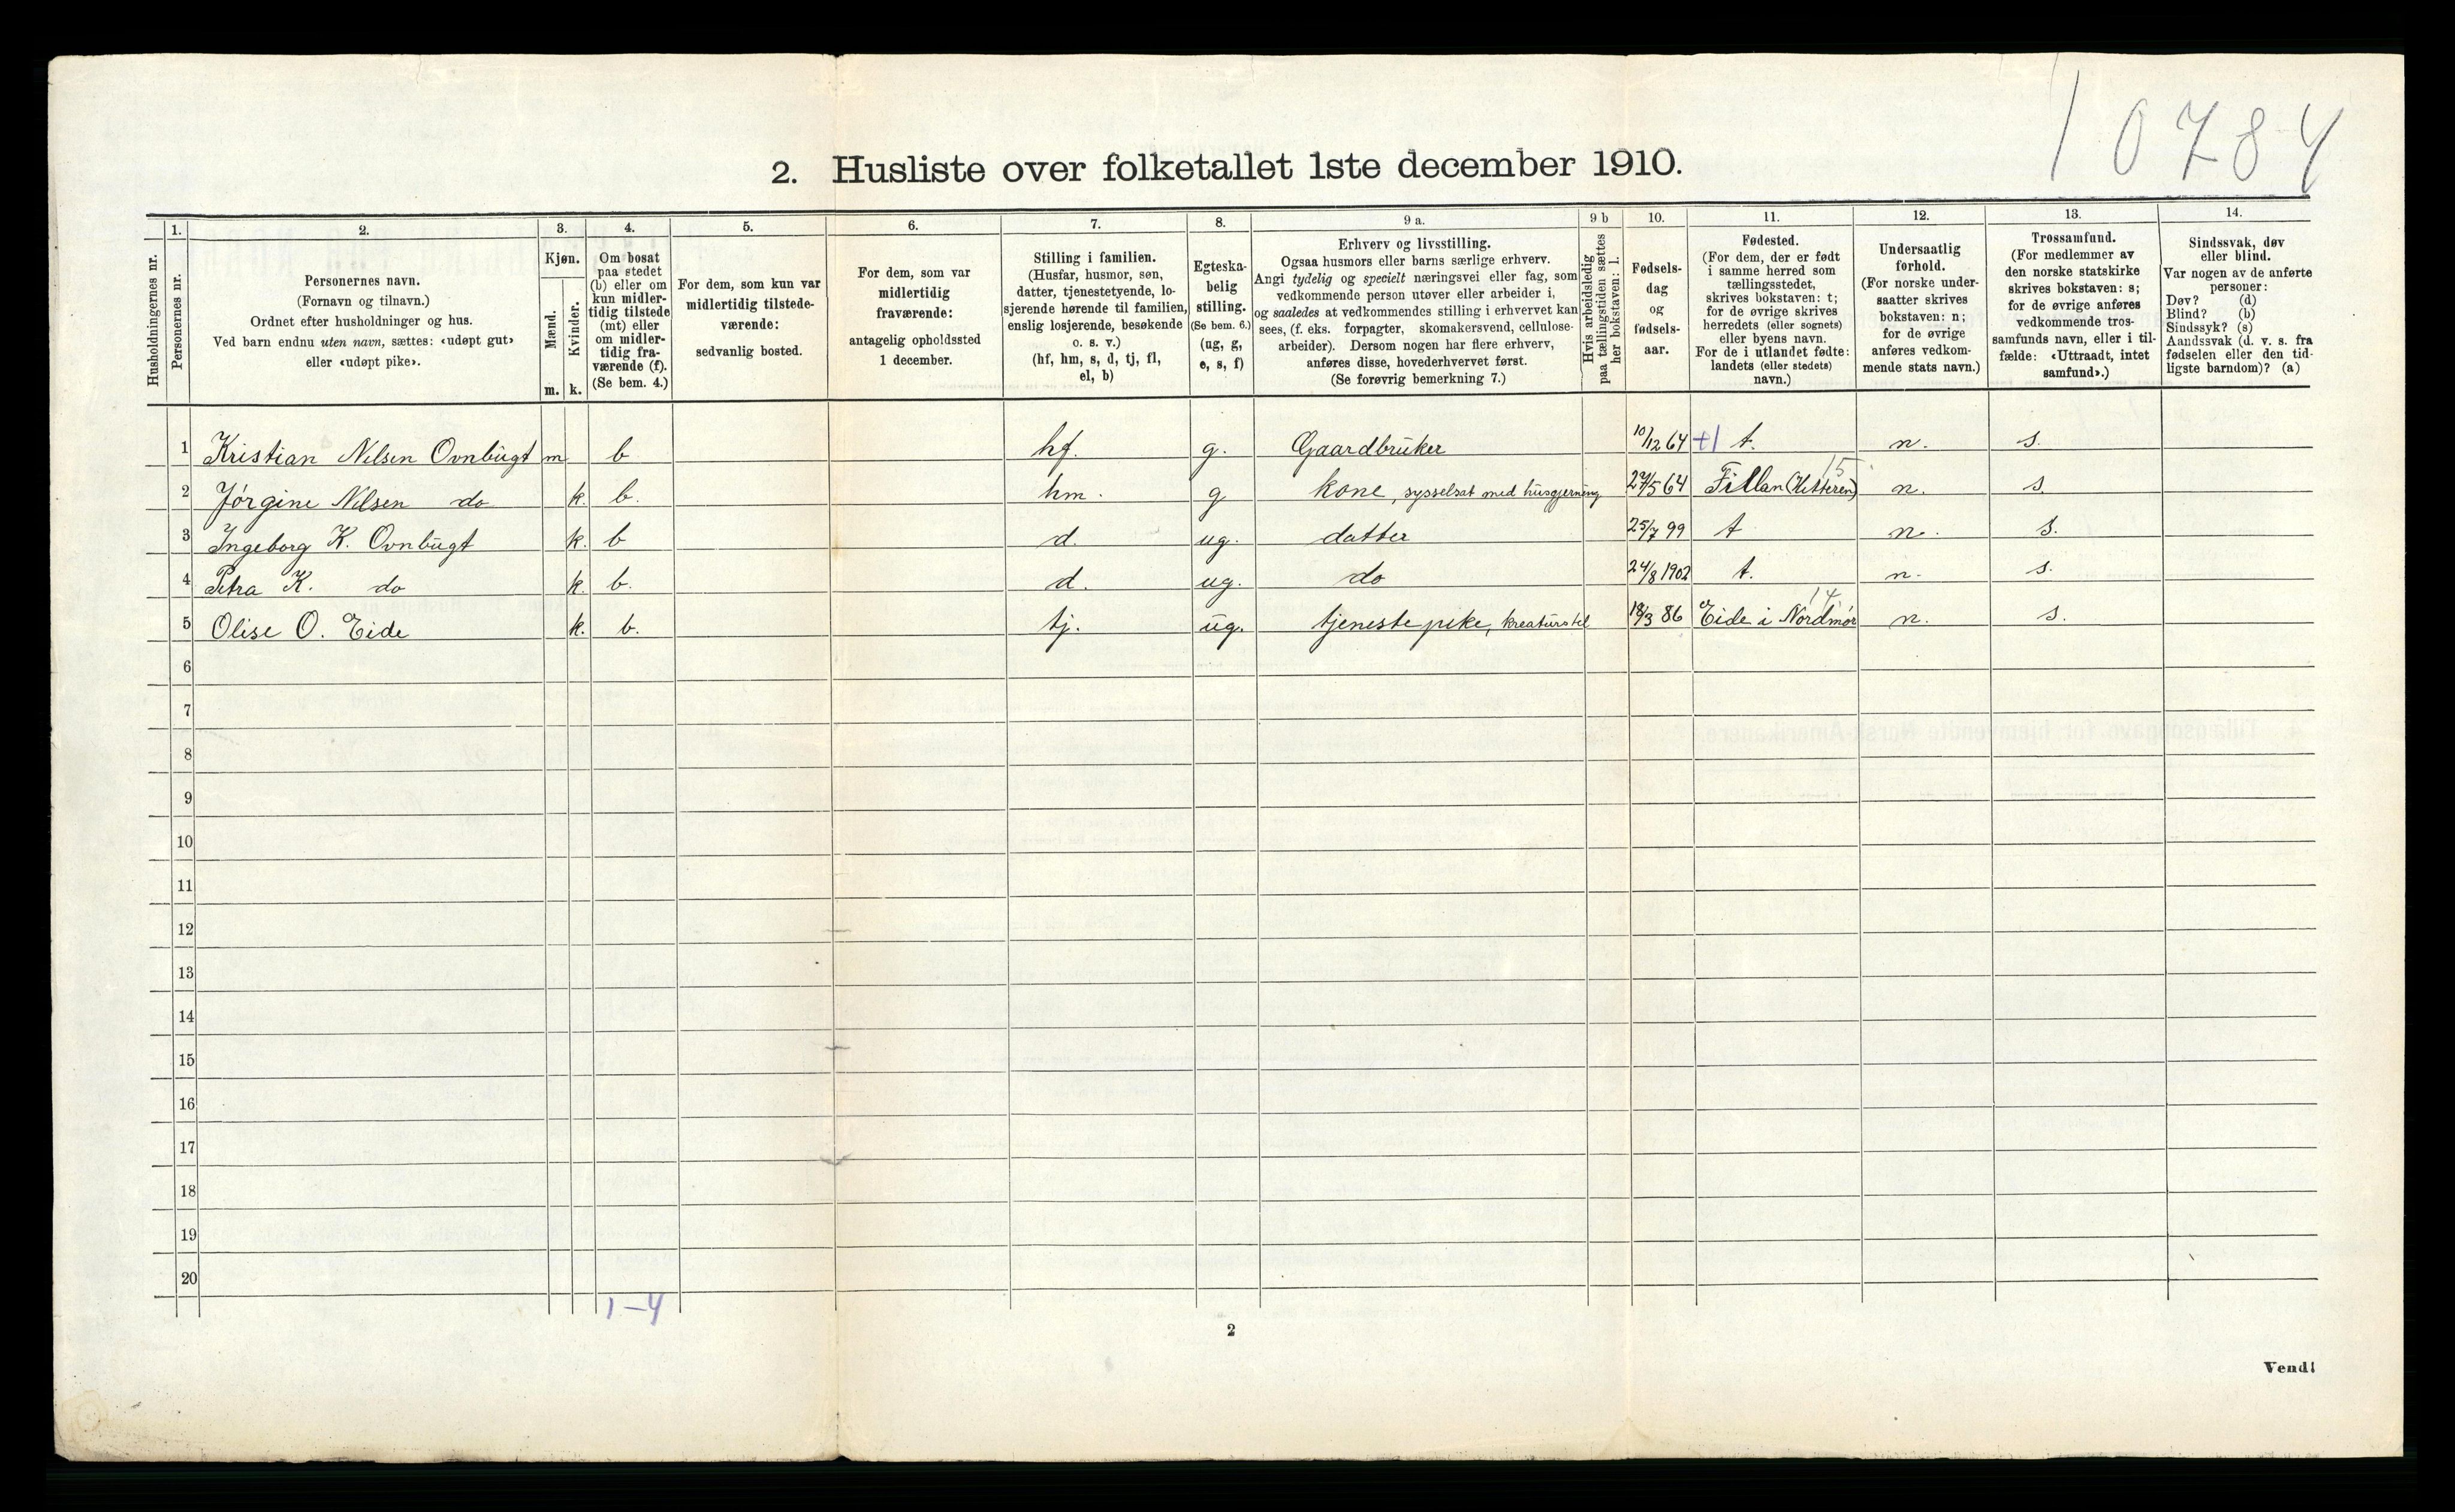 10784
2. Husliste over folketallet 1ste december 1910.
Husholdningernes nr.
1.
Personernes nr.
2.
Personernes navn.
(Fornavn og tilnavn.)
Ordnet efter husholdninger og hus.
Ved barn endnu uten navn, sættes: «udøpt gut»
eller «udøpt pike».
3.
Kjøn.
Mænd.
Kvinder.
m. k.
4.
Om bosat
paa stedet
(b) eller om
kun midler-
tidig tilstede
(mt) eller
om midler-
tidig fra-
værende (f).
(Se bem. 4.)
5.
For dem, som kun var
midlertidig tilstede-
værende:
sedvanlig bosted.
6.
For dem, som var
midlertidig
fraværende:
antagelig opholdssted
1 december.
7.
Stilling i familien.
(Husfar, husmor, søn,
datter, tjenestetyende, lo-
sjerende hørende til familien,
enslig losjerende, besøkende
o. s. v.)
(hf, hm, s, d, tj, fl,
el, b)
8.
Egteska-
belig
stilling.
(Se bem. 6.)
(ug, g,
e, s, f)
9 a.
Erhverv og livsstilling.
Ogsaa husmors eller barns særlige erhverv.
Angi tydelig og specielt næringsvei eller fag, som
vedkommende person utøver eller arbeider i,
og saaledes at vedkommendes stilling i erhvervet kan
sees, (f. eks. forpagter, skomakersvend, cellulose-
arbeider). Dersom nogen har flere erhverv,
anføres disse, hovederhvervet først.
(Se forøvrig bemerkning 7.)
9 b
Hvis arbeidsledig
paa tællingstiden sættes
her bokstaven: l.
10.
Fødsels-
dag
og
fødsels-
aar.
11.
Fødested.
(For dem, der er født
i samme herred som
tællingsstedet,
skrives bokstaven: t;
for de øvrige skrives
herredets (eller sognets)
eller byens navn.
For de i utlandet fødte:
landets (eller stedets)
navn.)
12.
Undersaatlig
forhold.
(For norske under-
saatter skrives
bokstaven: n;
for de øvrige
anføres vedkom-
mende stats navn.)
13.
Trossamfund.
(For medlemmer av
den norske statskirke
skrives bokstaven: s;
for de øvrige anføres
vedkommende tros-
samfunds navn, eller i til-
fælde: «Uttraadt, intet
samfund».)
14.
Sindssvak, døv
eller blind.
Var nogen av de anførte
personer:
Døv? (d)
Blind? (b)
Sindssyk? (s)
Aandssvak (d. v. s. fra
fødselen eller den tid-
ligste barndom)? (a)
1 Kristian Nilsen Ovnbugt m b hf. g. Gaardbruker 10/12 64 +1 t. n. s.
15
2 Jørgine Nilsen do k. b. hm. g kone, sysselsat med husgjerning 27/5 64 Fillan (Hitteren) n. s.
3 Ingeborg K. Ovnbugt k. b d. ug. datter 25/7 99 t n. s.
4 Petra K. do k. b. d. ug. do 24/8 1902 t. n. s.
14
5 Olise O. Eide k. b. tj. ug. tjenestepike, kreaturstel 18/3 86 Eide i Nordmør n. s.
6
7
8
9
10
11
12
13
14
15
16
17
18
19
20
1-4
2
Vend!